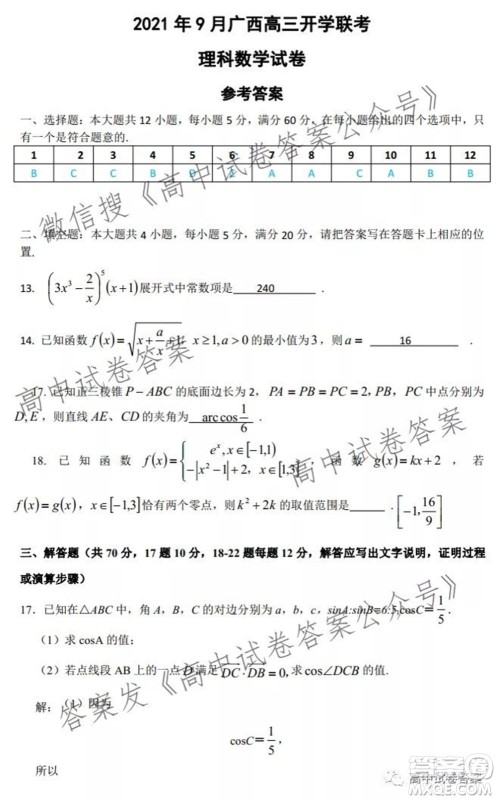 2021 年 9 月广西高三开学联考
理科数学试卷
参考答案
一、选择题：本大题共 12 小题，每小题 5 分，满分 60 分，在每小题给出的四个选项中，只
有一个是符合题意的.
1 2 3 4 5 6 7 8 9 10 11 12
B C C B D A A C A B B
二、填空题：本大题共 4 小题，每小题 5 分，满分 20 分，请把答案写在答题卡上相应的位
置.
13. (3x³ − 2/x)⁵(x+1)展开式中常数项是 240 .
14. 已知函数 f(x)=√(x+a/x+1), x≥1,a>0 的最小值为3，则 a= 16 .
17. 已知正三棱锥 P−ABC 的底面边长为 2，PA=PB=PC=2，PB、PC 中点分别为
D,E，则直线 AE、CD 的夹角为 arccos 1/6 .
18. 已知函数 f(x)={eˣ,x∈[-1,1) −|x²−1|+2，x∈[1,3] . 函数 g(x)=kx+2，若
f(x)=g(x)，x∈[-1,3]恰有两个零点，则 k²+2k 的取值范围是 . [-1,16/9]
三、解答题（共 70 分，17 题 10 分，18-22 题每题 12 分，解答应写出文字说明，证明过程
或演算步骤）
17. 已知在△ABC 中，角 A，B，C 的对边分别为 a，b，c，sinA:sinB=6:5,cosC=1/5.
（1）求 cosA 的值；
（2）若点线段 AB 上的一点 D 满足 DC·DB=0,求 cos∠DCB 的值.
解：（1）因为
cosC=1/5，
所以
微信搜《高中试卷答案公众号》
高中试卷答案
高中试卷答案
答案发《高中试卷答案公众号》
高中试卷答案
答案圈
MXQE.COM